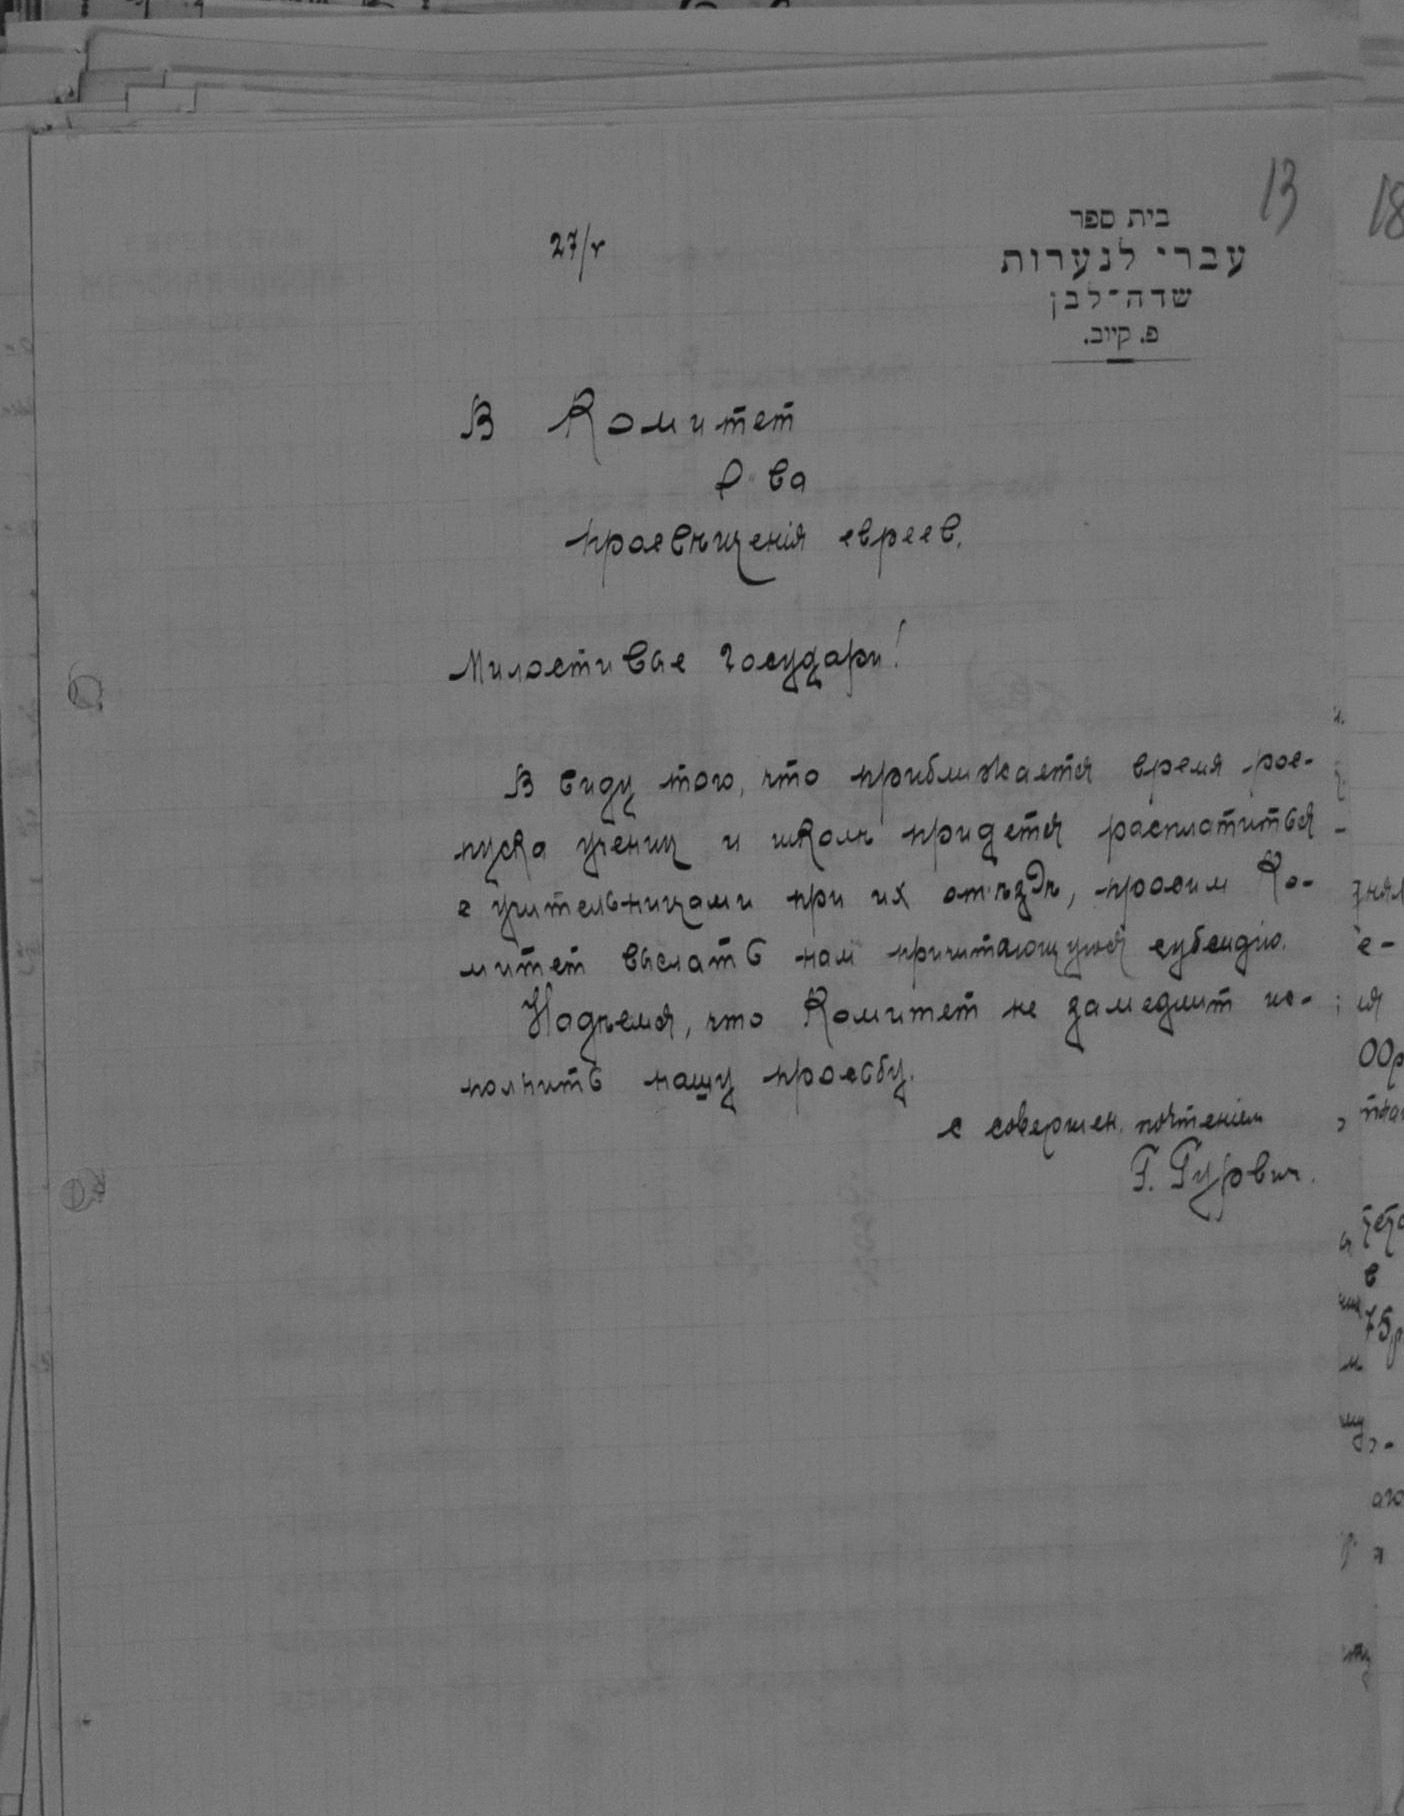 13
בית ספר
עברי לנערות
שדה־לבן
פ. קיוב.
27/V
В Комитет
О-ва
просвѣщенія евреев.
Милостивые Государи!
В виду того, что приближается время рос-
пуска учениц и школѣ придется расплатиться
с учительницами при их отъѣздѣ, просим Ко-
митет выслать нам причитающуюся субсидію.
Надѣемся, что Комитет не замедлит ис-
полнить нашу просьбу.
с совершен. почтеніем
Г. Гурович.
18